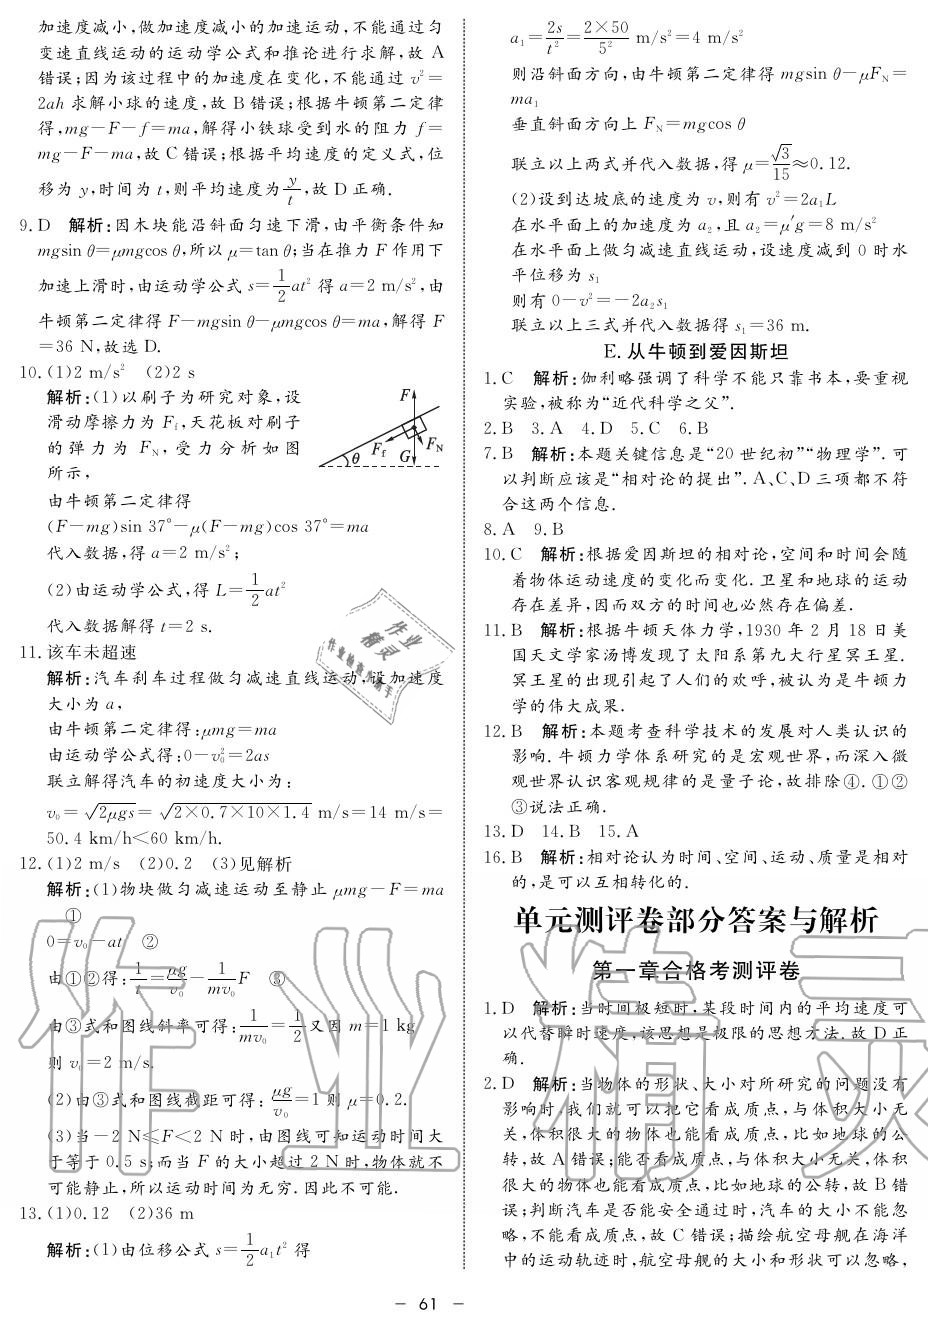 加速度减小,做加速度减小的加速运动,不能通过匀
变速直线运动的运动学公式和推论进行求解,故 A
错误;因为该过程中的加速度在变化,不能通过 v²=
2ah 求解小球的速度,故 B 错误;根据牛顿第二定律
得,mg－F－f=ma,解得小铁球受到水的阻力 f=
mg－F－ma,故 C 错误;根据平均速度的定义式,位
移为 y,时间为 t,则平均速度为y/t,故 D 正确.
9. D 解析:因木块能沿斜面匀速下滑,由平衡条件知
mgsin θ=μmgcos θ,所以 μ=tan θ;当在推力 F 作用下
加速上滑时,由运动学公式 s=1/2at² 得 a=2 m/s²,由
牛顿第二定律得 F－mgsin θ－μmgcos θ=ma,解得 F
=36 N,故选 D.
10. (1)2 m/s² (2)2 s
解析:(1)以刷子为研究对象,设
滑动摩擦力为 Ff,天花板对刷子
的弹力为 FN,受力分析如图
所示,
F
Ff
FN
θ
G
由牛顿第二定律得
(F－mg)sin 37°－μ(F－mg)cos 37°=ma
代入数据,得 a=2 m/s²;
(2)由运动学公式,得 L=1/2at²
代入数据解得 t=2 s.
11. 该车未超速
解析:汽车刹车过程做匀减速直线运动,设加速度
大小为 a,
由牛顿第二定律得:μmg=ma
由运动学公式得:0－v₀²=2as
联立解得汽车的初速度大小为:
v₀=√(2μgs)=√(2×0.7×10×1.4) m/s=14 m/s=
50.4 km/h<60 km/h.
12. (1)2 m/s (2)0.2 (3)见解析
解析:(1)物块做匀减速运动至静止 μmg－F=ma
①
0=v₀－at ②
由①②得:1/t=μg/v₀－1/(mv₀)F ③
由③式和图线斜率可得:1/(mv₀)=1/2又因 m=1 kg
则 v₀=2 m/s.
(2)由③式和图线截距可得:μg/v₀=1则 μ=0.2.
(3)当－2 N≤F<2 N 时,由图线可知运动时间大
于等于 0.5 s;而当 F 的大小超过 2 N 时,物体就不
可能静止,所以运动时间为无穷.因此不可能.
13. (1)0.12 (2)36 m
解析:(1)由位移公式 s=1/2a₁t² 得
a₁=2s/t²=2×50/5² m/s²=4 m/s²
则沿斜面方向,由牛顿第二定律得 mgsin θ－μFN=
ma₁
垂直斜面方向上 FN=mgcos θ
联立以上两式并代入数据,得 μ=√3/15≈0.12.
(2)设到达坡底的速度为 v,则有 v²=2a₁L
在水平面上的加速度为 a₂,且 a₂=μ′g=8 m/s²
在水平面上做匀减速直线运动,设速度减到 0 时水
平位移为 s₁
则有 0－v²=－2a₂s₁
联立以上三式并代入数据得 s₁=36 m.
E. 从牛顿到爱因斯坦
1. C 解析:伽利略强调了科学不能只靠书本,要重视
实验,被称为“近代科学之父”.
2. B 3. A 4. D 5. C 6. B
7. B 解析:本题关键信息是“20 世纪初”“物理学”.可
以判断应该是“相对论的提出”.A、C、D 三项都不符
合这两个信息.
8. A 9. B
10. C 解析:根据爱因斯坦的相对论,空间和时间会随
着物体运动速度的变化而变化.卫星和地球的运动
存在差异,因而双方的时间也必然存在偏差.
11. B 解析:根据牛顿天体力学,1930 年 2 月 18 日美
国天文学家汤博发现了太阳系第九大行星冥王星.
冥王星的出现引起了人们的欢呼,被认为是牛顿力
学的伟大成果.
12. B 解析:本题考查科学技术的发展对人类认识的
影响.牛顿力学体系研究的是宏观世界,而深入微
观世界认识客观规律的是量子论,故排除④.①②
③说法正确.
13. D 14. B 15. A
16. B 解析:相对论认为时间、空间、运动、质量是相对
的,是可以互相转化的.
单元测评卷部分答案与解析
第一章合格考测评卷
1. D 解析:当时间极短时,某段时间内的平均速度可
以代替瞬时速度,该思想是极限的思想方法.故 D 正
确.
2. D 解析:当物体的形状、大小对所研究的问题没有
影响时,我们就可以把它看成质点,与体积大小无
关,体积很大的物体也能看成质点,比如地球的公
转,故 A 错误;能否看成质点,与体积大小无关,体积
很大的物体也能看成质点,比如地球的公转,故 B 错
误;判断汽车是否能安全通过时,汽车的大小不能忽
略,不能看成质点,故 C 错误;描绘航空母舰在海洋
中的运动轨迹时,航空母舰的大小和形状可以忽略,
－ 61 －
作业精灵
作业
精灵